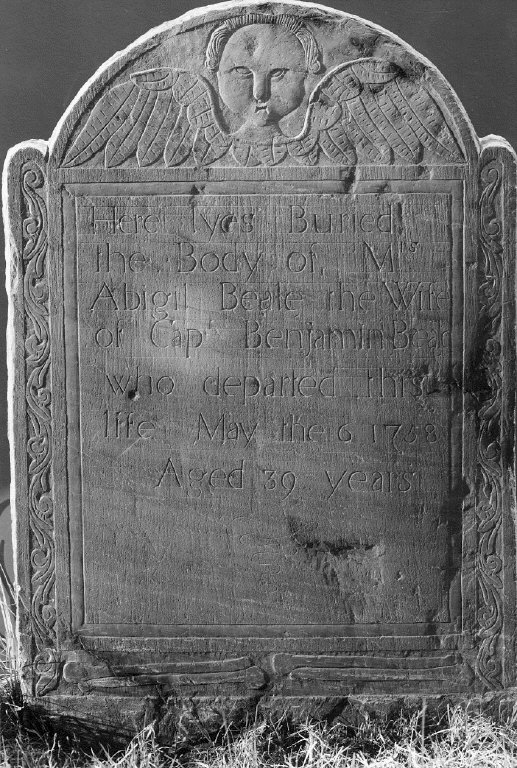 Here lyes Buried
the Body of Mrs
Abigil Beale the Wife
of Capt Benjamin Beale
who departed this
life May the 6 1758
Aged 39 years